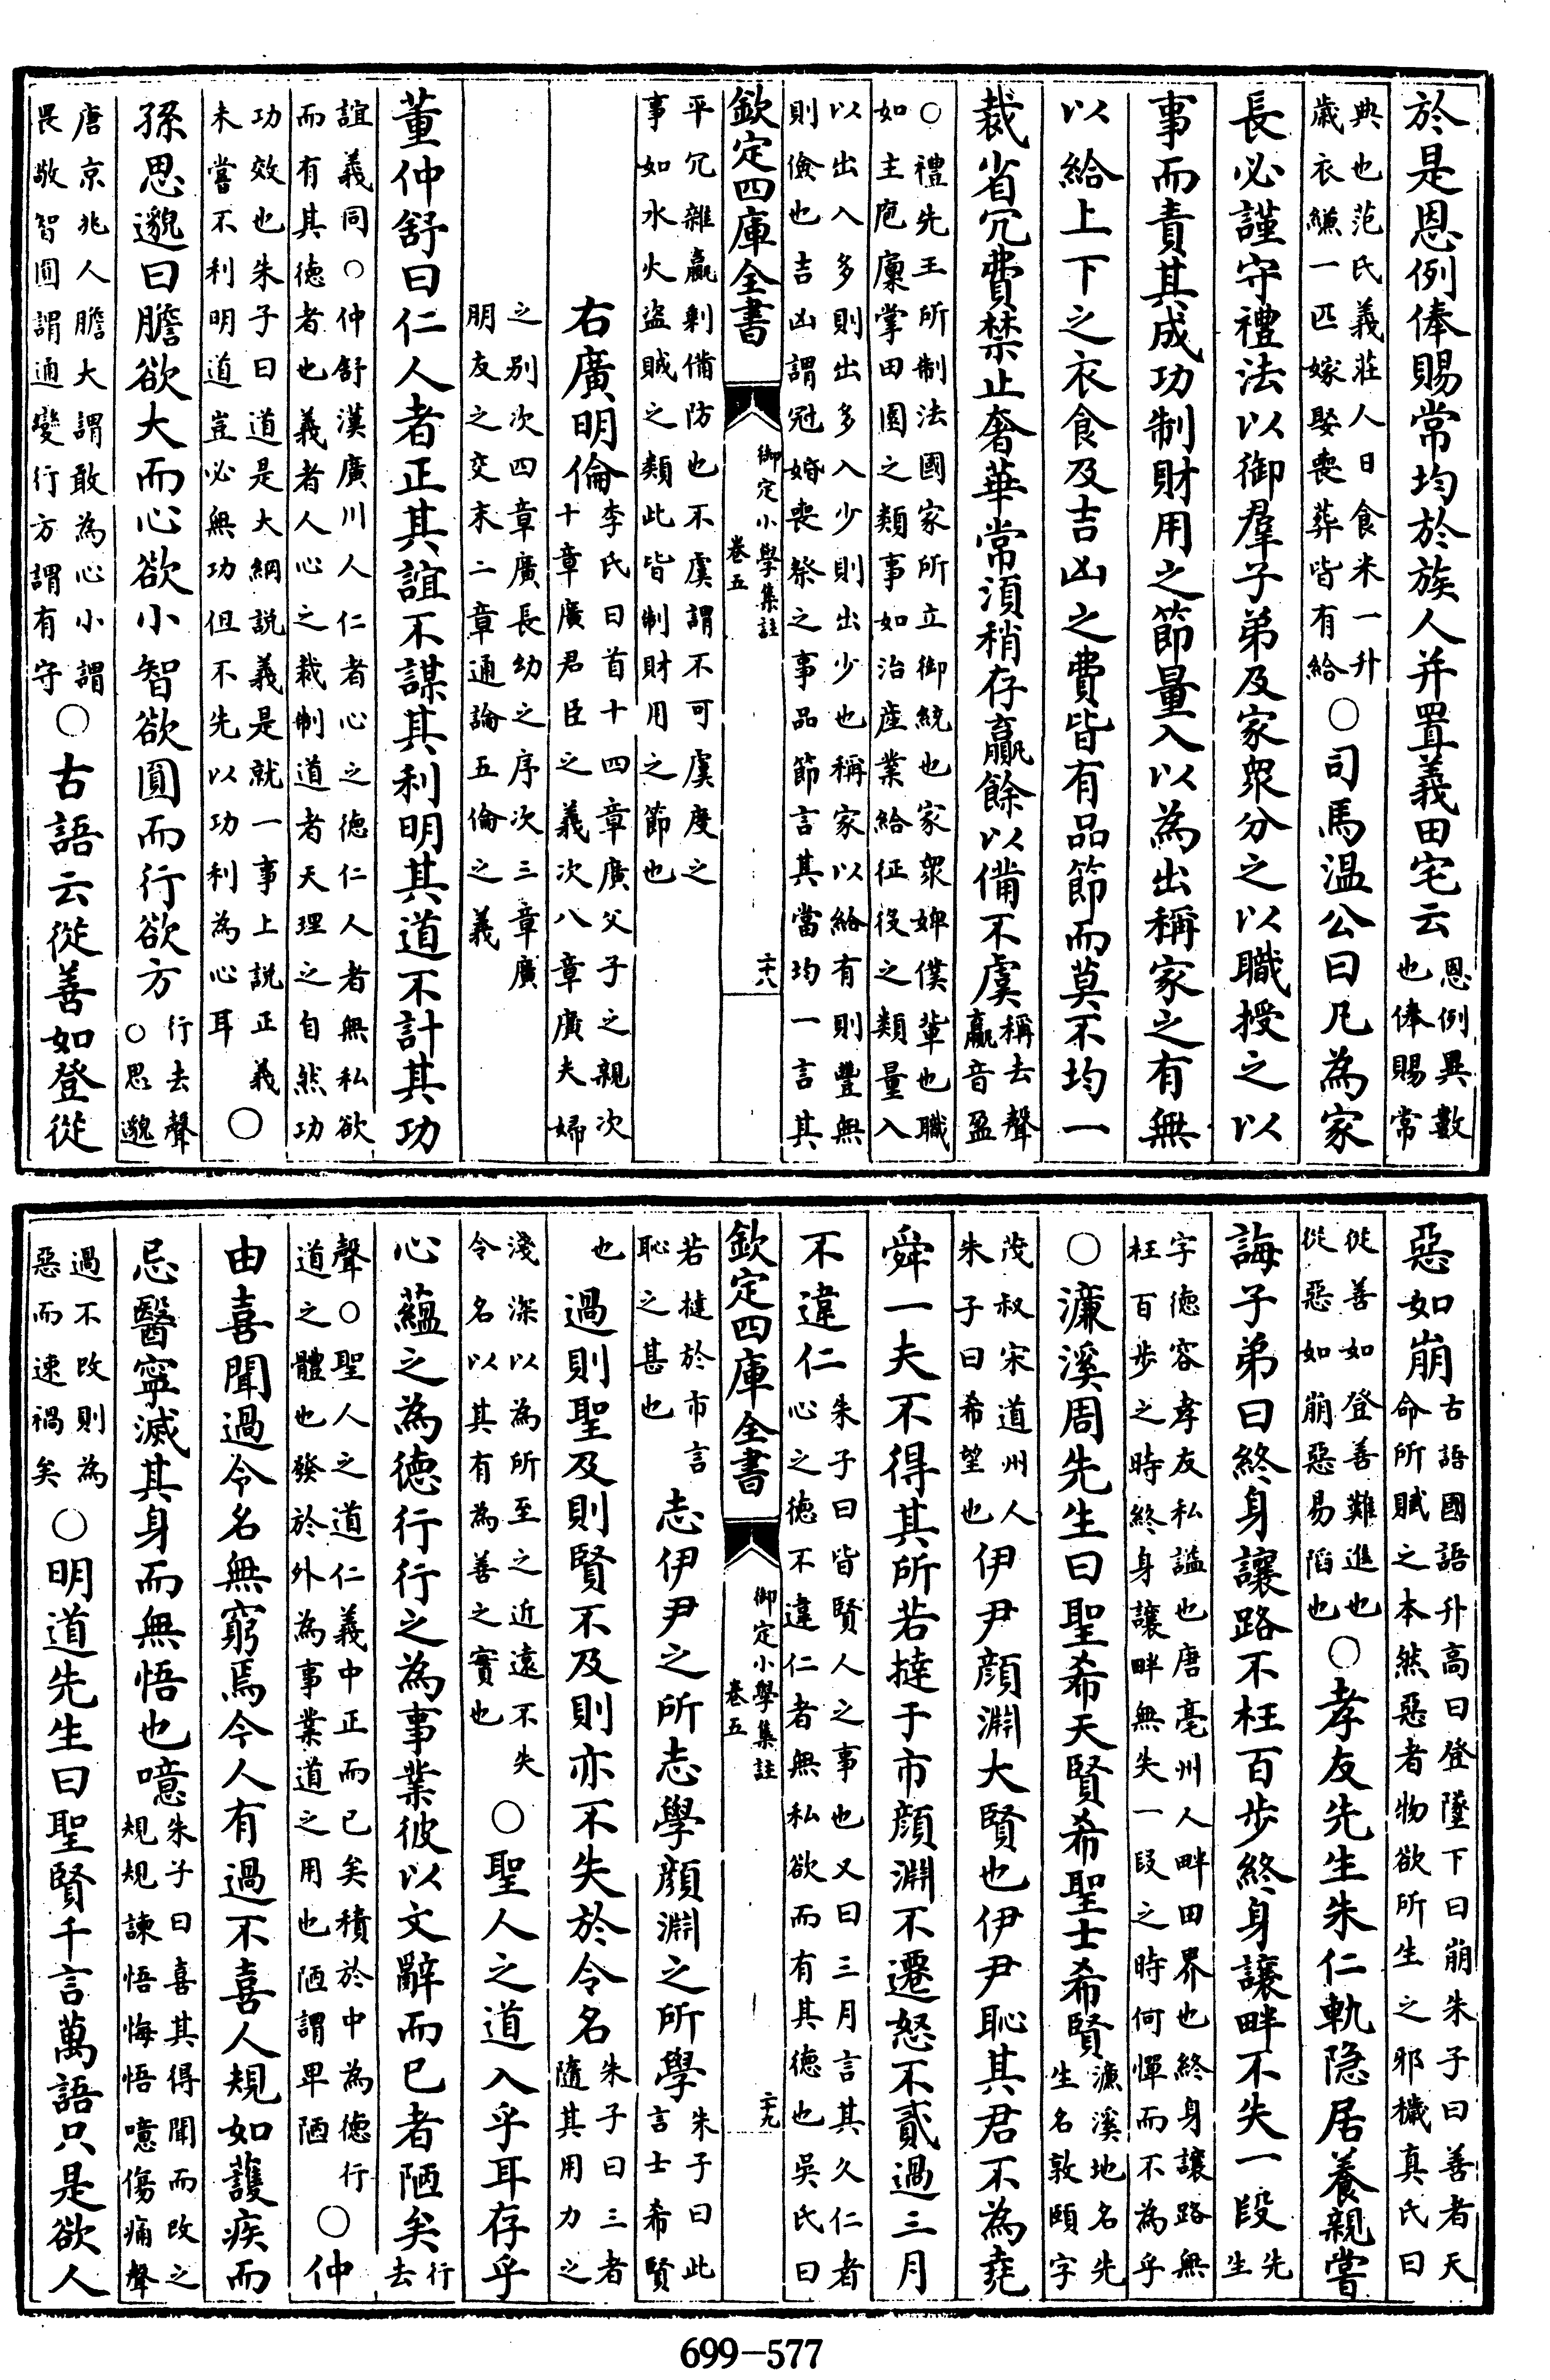 於是恩例俸賜常均於族人并置義田宅云恩例異數也俸賜常
典也范氏義莊人日食米一升歳衣縑一匹嫁娶喪葬皆有給○司馬温公曰凡為家
長必謹守禮法以御羣子弟及家衆分之以職授之以
事而責其成功制財用之節量入以為出稱家之有無
以給上下之衣食及吉凶之費皆有品節而莫不均一
裁省冗費禁止奢華常須稍存贏餘以備不虞稱去聲贏音盈
○禮先王所制法國家所立御統也家衆婢僕輩也職
如主庖廩掌田園之類事如治産業給征役之類量入
以出入多則出多入少則出少也稱家以給有則豐無
則儉也吉凶謂冠婚喪祭之事品節言其當均一言其
欽定四庫全書 御定小學集註 卷五 二十八
平冗雜贏剰備防也不虞謂不可虞度之
事如水火盗賊之類此皆制財用之節也
右廣明倫李氏曰首十四章廣父子之親次十章廣君臣之義次八章廣夫婦
之别次四章廣長幼之序次三章廣
朋友之交末二章通論五倫之義
董仲舒曰仁人者正其誼不謀其利明其道不計其功
誼義同○仲舒漢廣川人仁者心之徳仁人者無私欲
而有其徳者也義者人心之裁制道者天理之自然功
功效也朱子曰道是大綱説義是就一事上説正義未嘗不利明道豈必無功但不先以功利為心耳○
孫思邈曰膽欲大而心欲小智欲圓而行欲方行去聲○思邈
唐京兆人膽大謂敢為心小謂畏敬智圓謂通變行方謂有守○古語云從善如登從
惡如崩古語國語升高曰登墜下曰崩朱子曰善者天命所賦之本然惡者物欲所生之邪穢真氏曰
從善如登善難進也從惡如崩惡易陷也○孝友先生朱仁軌隐居養親嘗
誨子弟曰終身讓路不枉百步終身讓畔不失一段先生
字徳容孝友私謚也唐亳州人畔田界也終身讓路無
枉百步之時終身讓畔無失一段之時何憚而不為乎
○濂溪周先生曰聖希天賢希聖士希賢濂溪地名先生名敦頤字
茂叔宋道州人朱子曰希望也伊尹顔淵大賢也伊尹恥其君不為堯
舜一夫不得其所若撻于市顔淵不遷怒不貳過三月
不違仁朱子曰皆賢人之事也又曰三月言其久仁者心之徳不違仁者無私欲而有其徳也吳氏曰
欽定四庫全書 御定小學集註 卷五 二十九
若撻於市言恥之甚也志伊尹之所志學顔淵之所學朱子曰此言士希賢
也過則聖及則賢不及則亦不失於令名朱子曰三者隨其用力之
淺深以為所至之近遠不失令名以其有為善之實也○聖人之道入乎耳存乎
心蘊之為徳行行之為事業彼以文辭而已者陋矣行去
聲○聖人之道仁義中正而已矣積於中為徳行道之體也發於外為事業道之用也陋謂卑陋○仲
由喜聞過令名無窮焉今人有過不喜人規如護疾而
忌醫寧滅其身而無悟也噫朱子曰喜其得聞而改之規規諫悟悔悟噫傷痛聲
過不改則為惡而速禍矣○明道先生曰聖賢千言萬語只是欲人
699-577